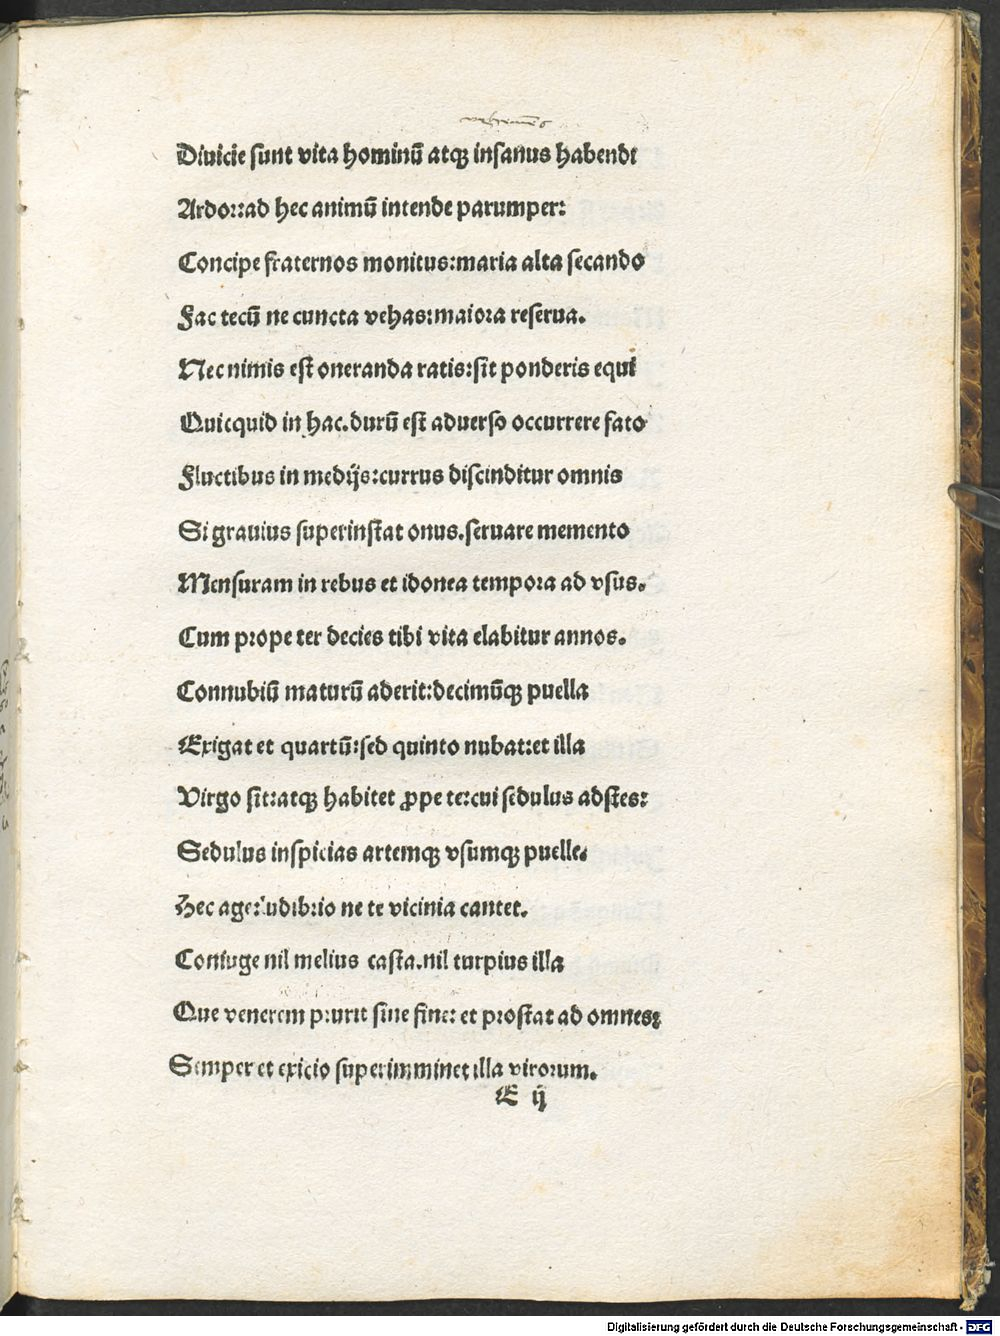 vehemēs
Diuicie sunt vita hominū atqꝫ insanus habendi
Ardor:ad hec animū intende parumper:
Concipe fraternos monitus:maria alta secando
Fac tecū ne cuncta vehas:maiora reserua.
Nec nimis est oneranda ratis:sit ponderis equi
Quicquid in hac.durū est aduerso occurrere fato
Fluctibus in medijs:currus discinditur omnis
Si grauius superinstat onus.seruare memento
Mensuram in rebus et idonea tempora ad vsus.
Cum prope ter decies tibi vita elabitur annos.
Connubiū maturū aderit:decimūqꝫ puella
Exigat et quartū:sed quinto nubat:et illa
Virgo sit:atqꝫ habitet ꝓpe te:cui sedulus adstes:
Sedulus inspicias artemqꝫ vsumqꝫ puelle.
Hec age:ludibrio ne te vicinia cantet.
Coniuge nil melius casta.nil turpius illa
Que venerem prurit sine fine: et prostat ad omnes:
Semper et exicio superimminet illa virorum.
E ij
Digitalisierung gefördert durch die Deutsche Forschungsgemeinschaft - DFG